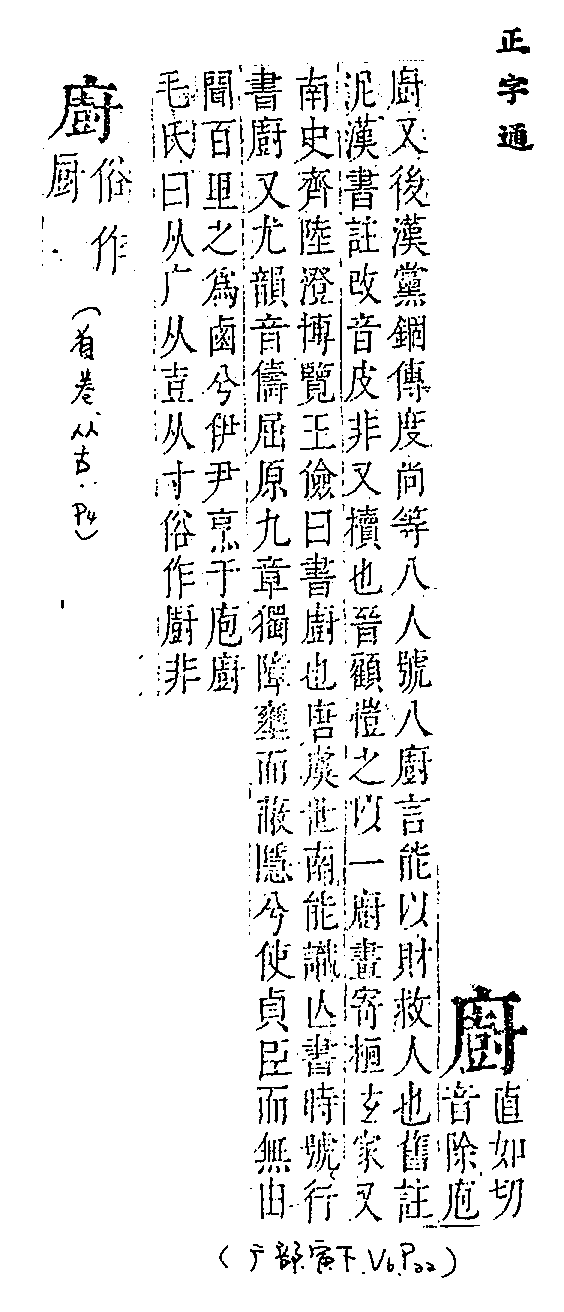 正字通
廚
直如切
音除庖
廚又後漢黨錮傳度尚等八人號八廚言能以財救人也舊註
泥漢書註改音皮非又櫝也晉顧愷之以一廚畫寄桓玄家又
南史齊陸澄博覽王儉曰書廚也唐虞世南能識亾書時號行
書廚又尤韻音儔屈原九章獨障壅而蔽隱兮使貞臣而無由
聞百里之爲鹵兮伊尹烹于庖廚
毛氏曰从广从壴从寸俗作厨非
(广部.寅下.V6.P22)
廚
俗作
厨
(首卷.从古.P4)